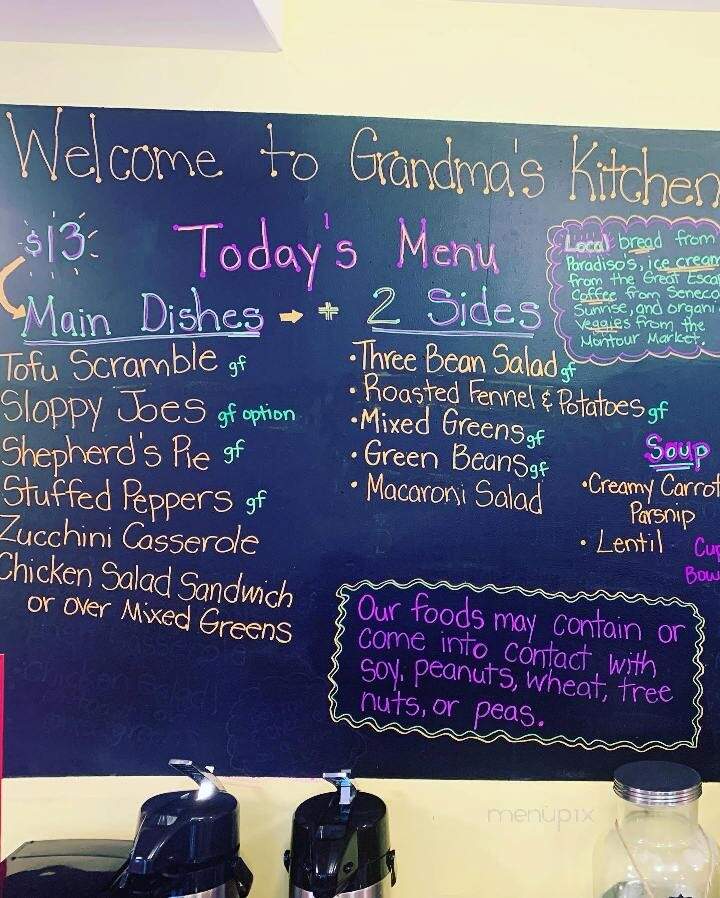 Welcome to Grandma's Kitchen
$13
Today's Menu
Local bread from
Paradiso's, ice cream
from the Great Esca
Coffee from Seneca
Sunrise, and organi
veggies from the
Montour Market.
Main Dishes → + 2 Sides
Tofu Scramble gf
Sloppy Joes gf option
Shepherd's Pie gf
Stuffed Peppers gf
Zucchini Casserole
Chicken Salad Sandwich
or over Mixed Greens
• Three Bean Salad gf
• Roasted Fennel & Potatoes gf
• Mixed Greens gf
• Green Beans gf
• Macaroni Salad
Soup
• Creamy Carrot
Parsnip
• Lentil
Cup
Bow
Our foods may contain or
come into contact with
soy, peanuts, wheat, tree
nuts, or peas.
menupix